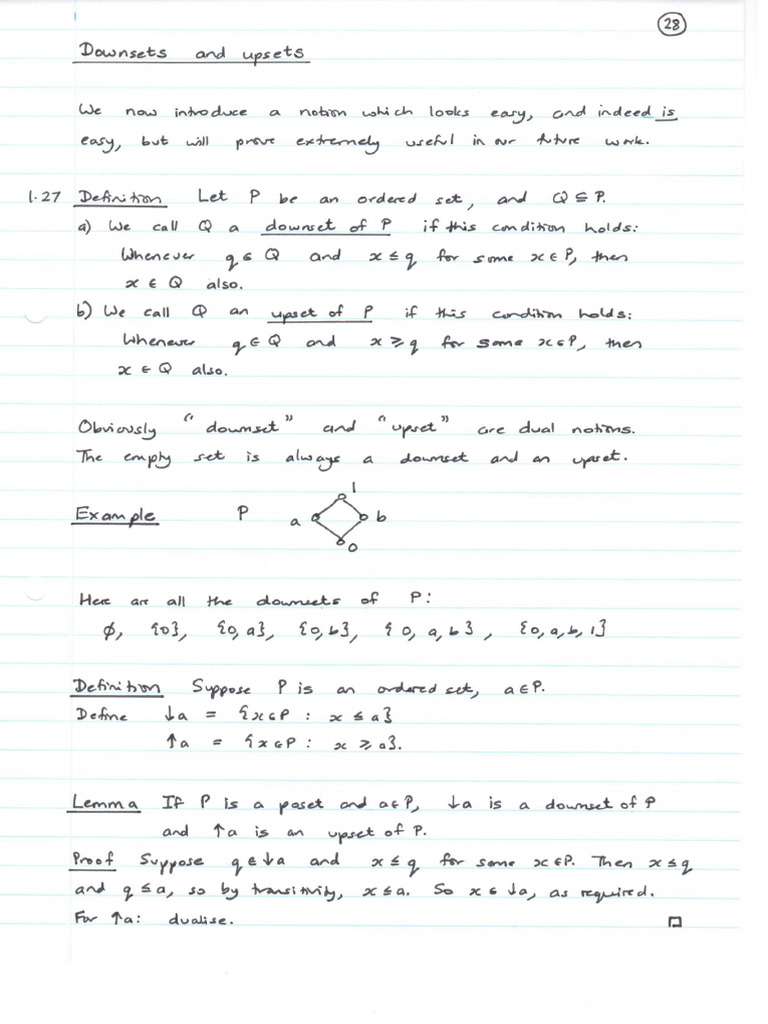 28
Downsets and upsets
We now introduce a notion which looks easy, and indeed is
easy, but will prove extremely useful in our future work.
1.27 Definition Let P be an ordered set, and Q ⊆ P.
a) We call Q a downset of P if this condition holds:
Whenever q ∈ Q and x ≤ q for some x ∈ P, then
x ∈ Q also.
b) We call Q an upset of P if this condition holds:
Whenever q ∈ Q and x ≥ q for some x ∈ P, then
x ∈ Q also.
Obviously "downset" and "upset" are dual notions.
The empty set is always a downset and an upset.
1
Example P a b
0
Here are all the downsets of P:
∅, {0}, {0,a}, {0,b}, {0, a, b}, {0, a, b, 1}
Definition Suppose P is an ordered set, a ∈ P.
Define ↓a = {x ∈ P : x ≤ a}
↑a = {x ∈ P : x ≥ a}.
Lemma If P is a poset and a ∈ P, ↓a is a downset of P
and ↑a is an upset of P.
Proof Suppose q ∈ ↓a and x ≤ q for some x ∈ P. Then x ≤ q
and q ≤ a, so by transitivity, x ≤ a. So x ∈ ↓a, as required.
For ↑a: dualise. □